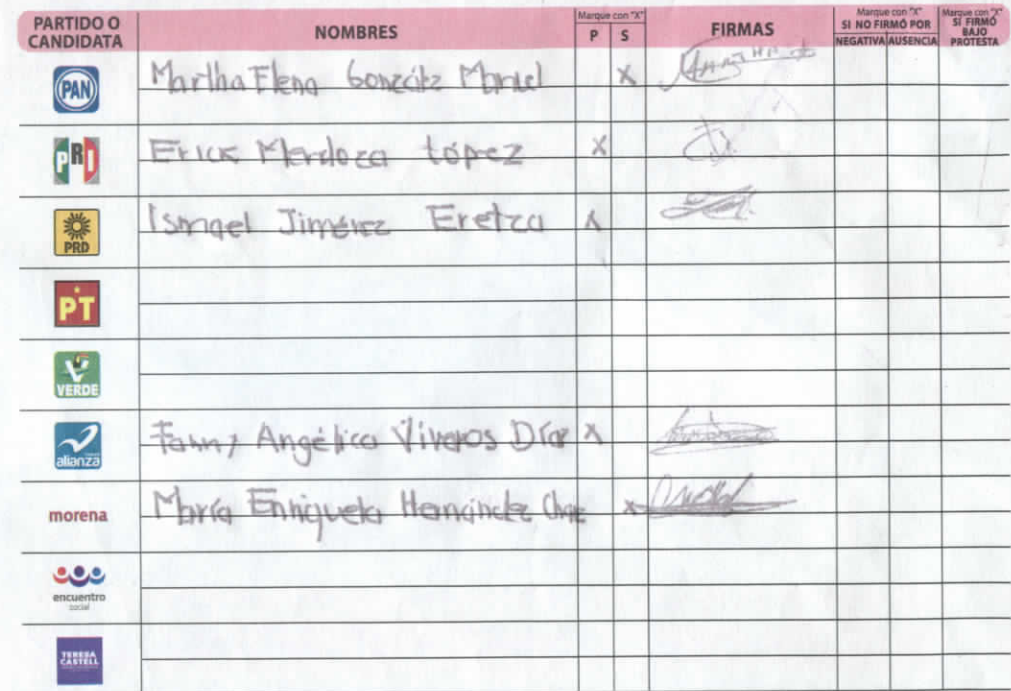 PARTIDO O CANDIDATA NOMBRES Marque con "X" P S FIRMAS Marque con "X" SI NO FIRMÓ POR NEGATIVA AUSENCIA Marque con "X" SI FIRMÓ BAJO PROTESTA
PAN Martha Elena González X
PRI Erick Mendoza López X
PRD Ismael Jiménez X
PT
VERDE
alianza Fanny Angélica Viveros Díaz X
morena María Enriqueta Hernández X
encuentro social
TERESA CASTELL